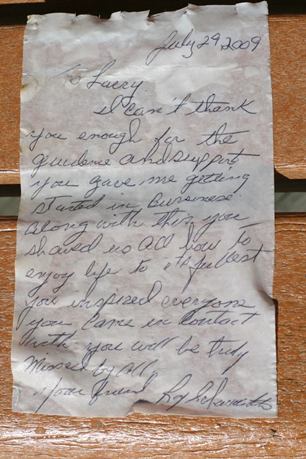 July 29 2009
To Larry
I can't thank
you enough for the
guidence and support
you gave me getting
started in Business.
Along with this you
showed us All how to
enjoy life to its fullest
you inspired everyone
you came in contact
with you will be truly
missed by All
your friend